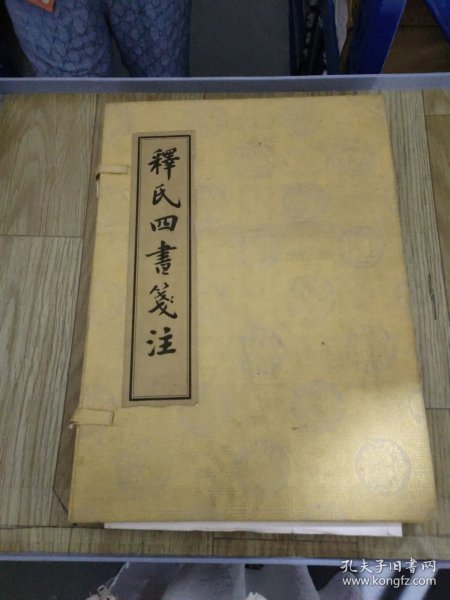 釋氏四書箋注
孔夫子旧书网
www.kongfz.com